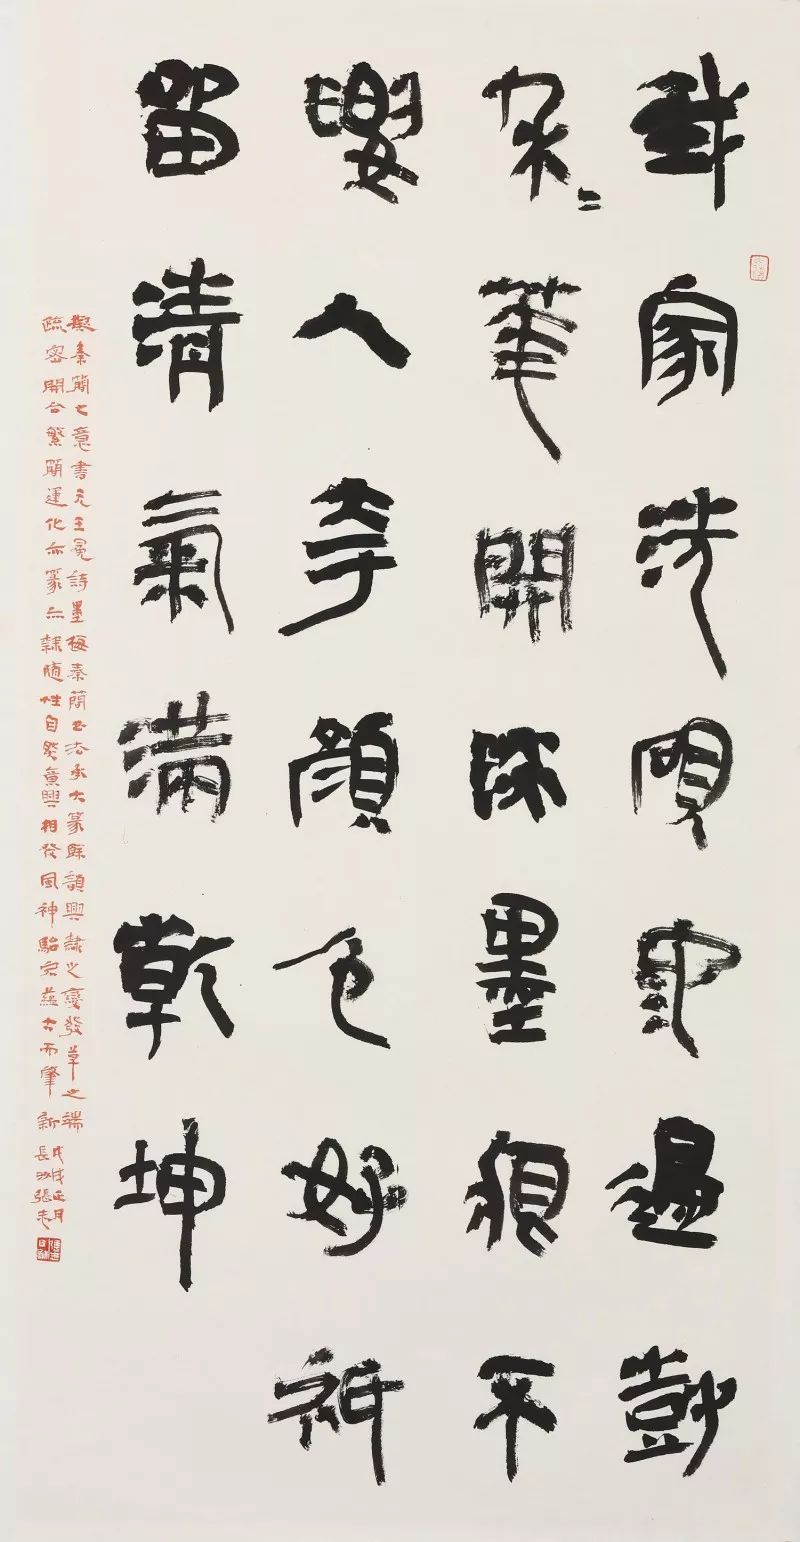 我家洗硯池邊樹
朵〻華開淡墨痕不
要人夸顏色好祇
留清氣滿乾坤
擬秦簡之意書元王冕詩墨梅秦簡書法承大篆餘韻興隸之變發草之端
疏密開合繁簡運化亦篆亦隸隨性自然意興相發風神駘宕蘊古而肇新
戊戌正月
長 張志